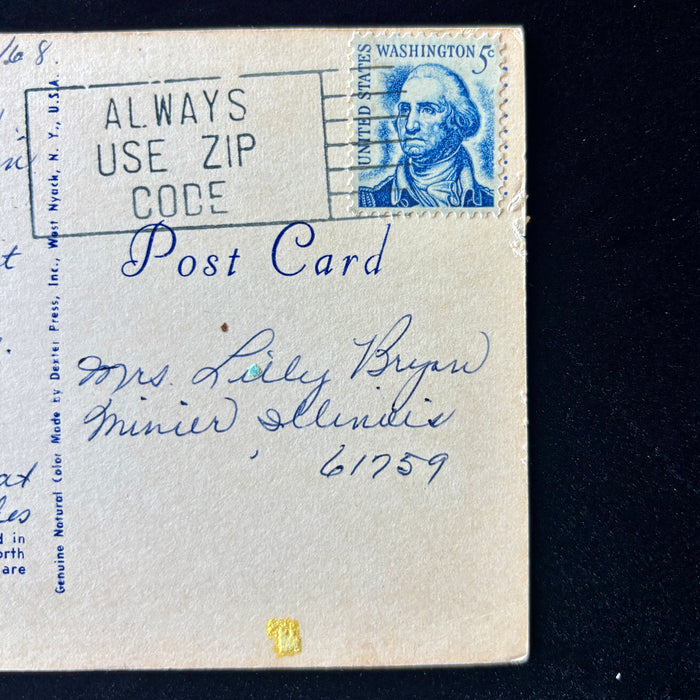 68
WASHINGTON 5c
UNITED STATES
ALWAYS
USE ZIP
CODE
Post Card
Mrs. Lilly Bryan
Minier Illinois
61759
Genuine Natural Color Made by Dexter Press, Inc., West Nyack, N. Y., U.S.A.
at
d in
orth
are